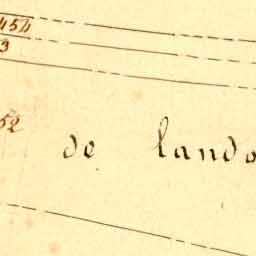 454
3
52 de lando